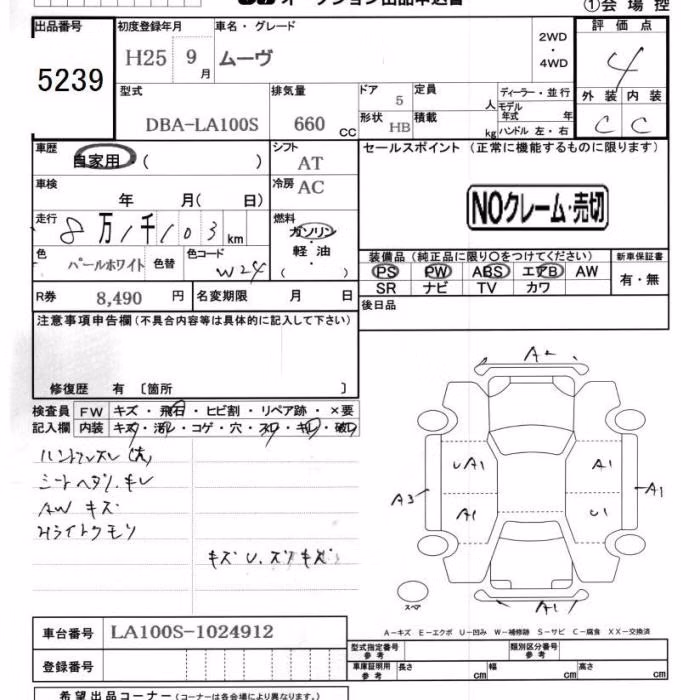 オークション出品申込書
①会場控
出品番号
5239
初度登録年月
H25 9月
車名・グレード
ムーヴ
2WD・4WD
評価点
4
外装 内装
C C
型式
DBA-LA100S
排気量
660 CC
ドア 5
形状 HB
定員 人
積載 kg
ディーラー・並行
モデル年式 年
ハンドル 左・右
車歴
自家用 ( )
シフト
AT
車検
年 月( 日)
冷房
AC
走行
8万1千103 km
燃料
ガソリン・軽油
( )
色
パールホワイト
色替
色コード
W24
R券 8,490 円
名変期限 月 日
セールスポイント (正常に機能するものに限ります)
NOクレーム・売切
装備品 (純正品に限り○をつけてください)
PS PW ABS エアB AW
SR ナビ TV カワ
新車保証書
有・無
後日品
注意事項申告欄 (不具合内容等は具体的に記入して下さい)
修復歴 有 〔箇所 〕
検査員記入欄
FW キズ・飛石・ヒビ割・リペア跡・×要
内装 キズ・汚レ・コゲ・穴・スレ・キレ・破レ
ハンドルスレ(大)
シートヘタリ、キレ
AW キズ
Hライトクモリ
キズ U、スリキズ
A2
UA1
A1
A3
A1
A1
U1
A1
スペア
A-キズ E-エクボ U-凹み W-補修跡 S-サビ C-腐食 XX-交換済
車台番号 LA100S-1024912
登録番号
型式指定番号 参考
類別区分番号 参考
車庫証明用 参考
長さ cm
幅 cm
高さ cm
希望出品コーナー (コーナーは各会場により異なります。)